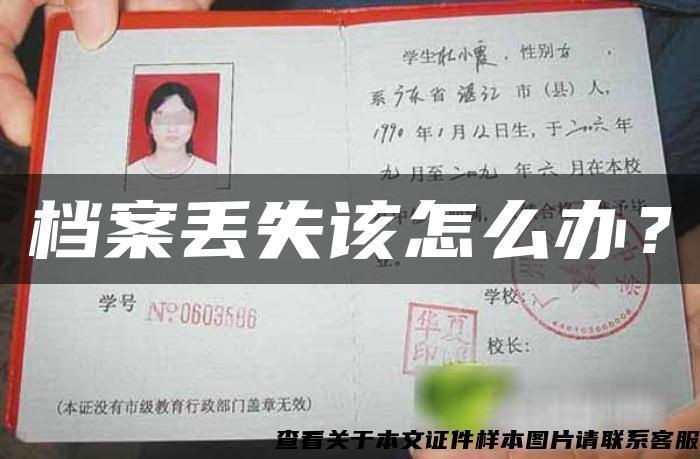 学生杜小霞，性别女，
系广东省湛江市（县）人，
1990年1月12日生，于二00六年
九月至二00九年六月在本校
档案丢失该怎么办？
业。
学校：
学号 №0603586
华夏
印
校长：
(本证没有市级教育行政部门盖章无效)
查看关于本文证件样本图片请联系客服